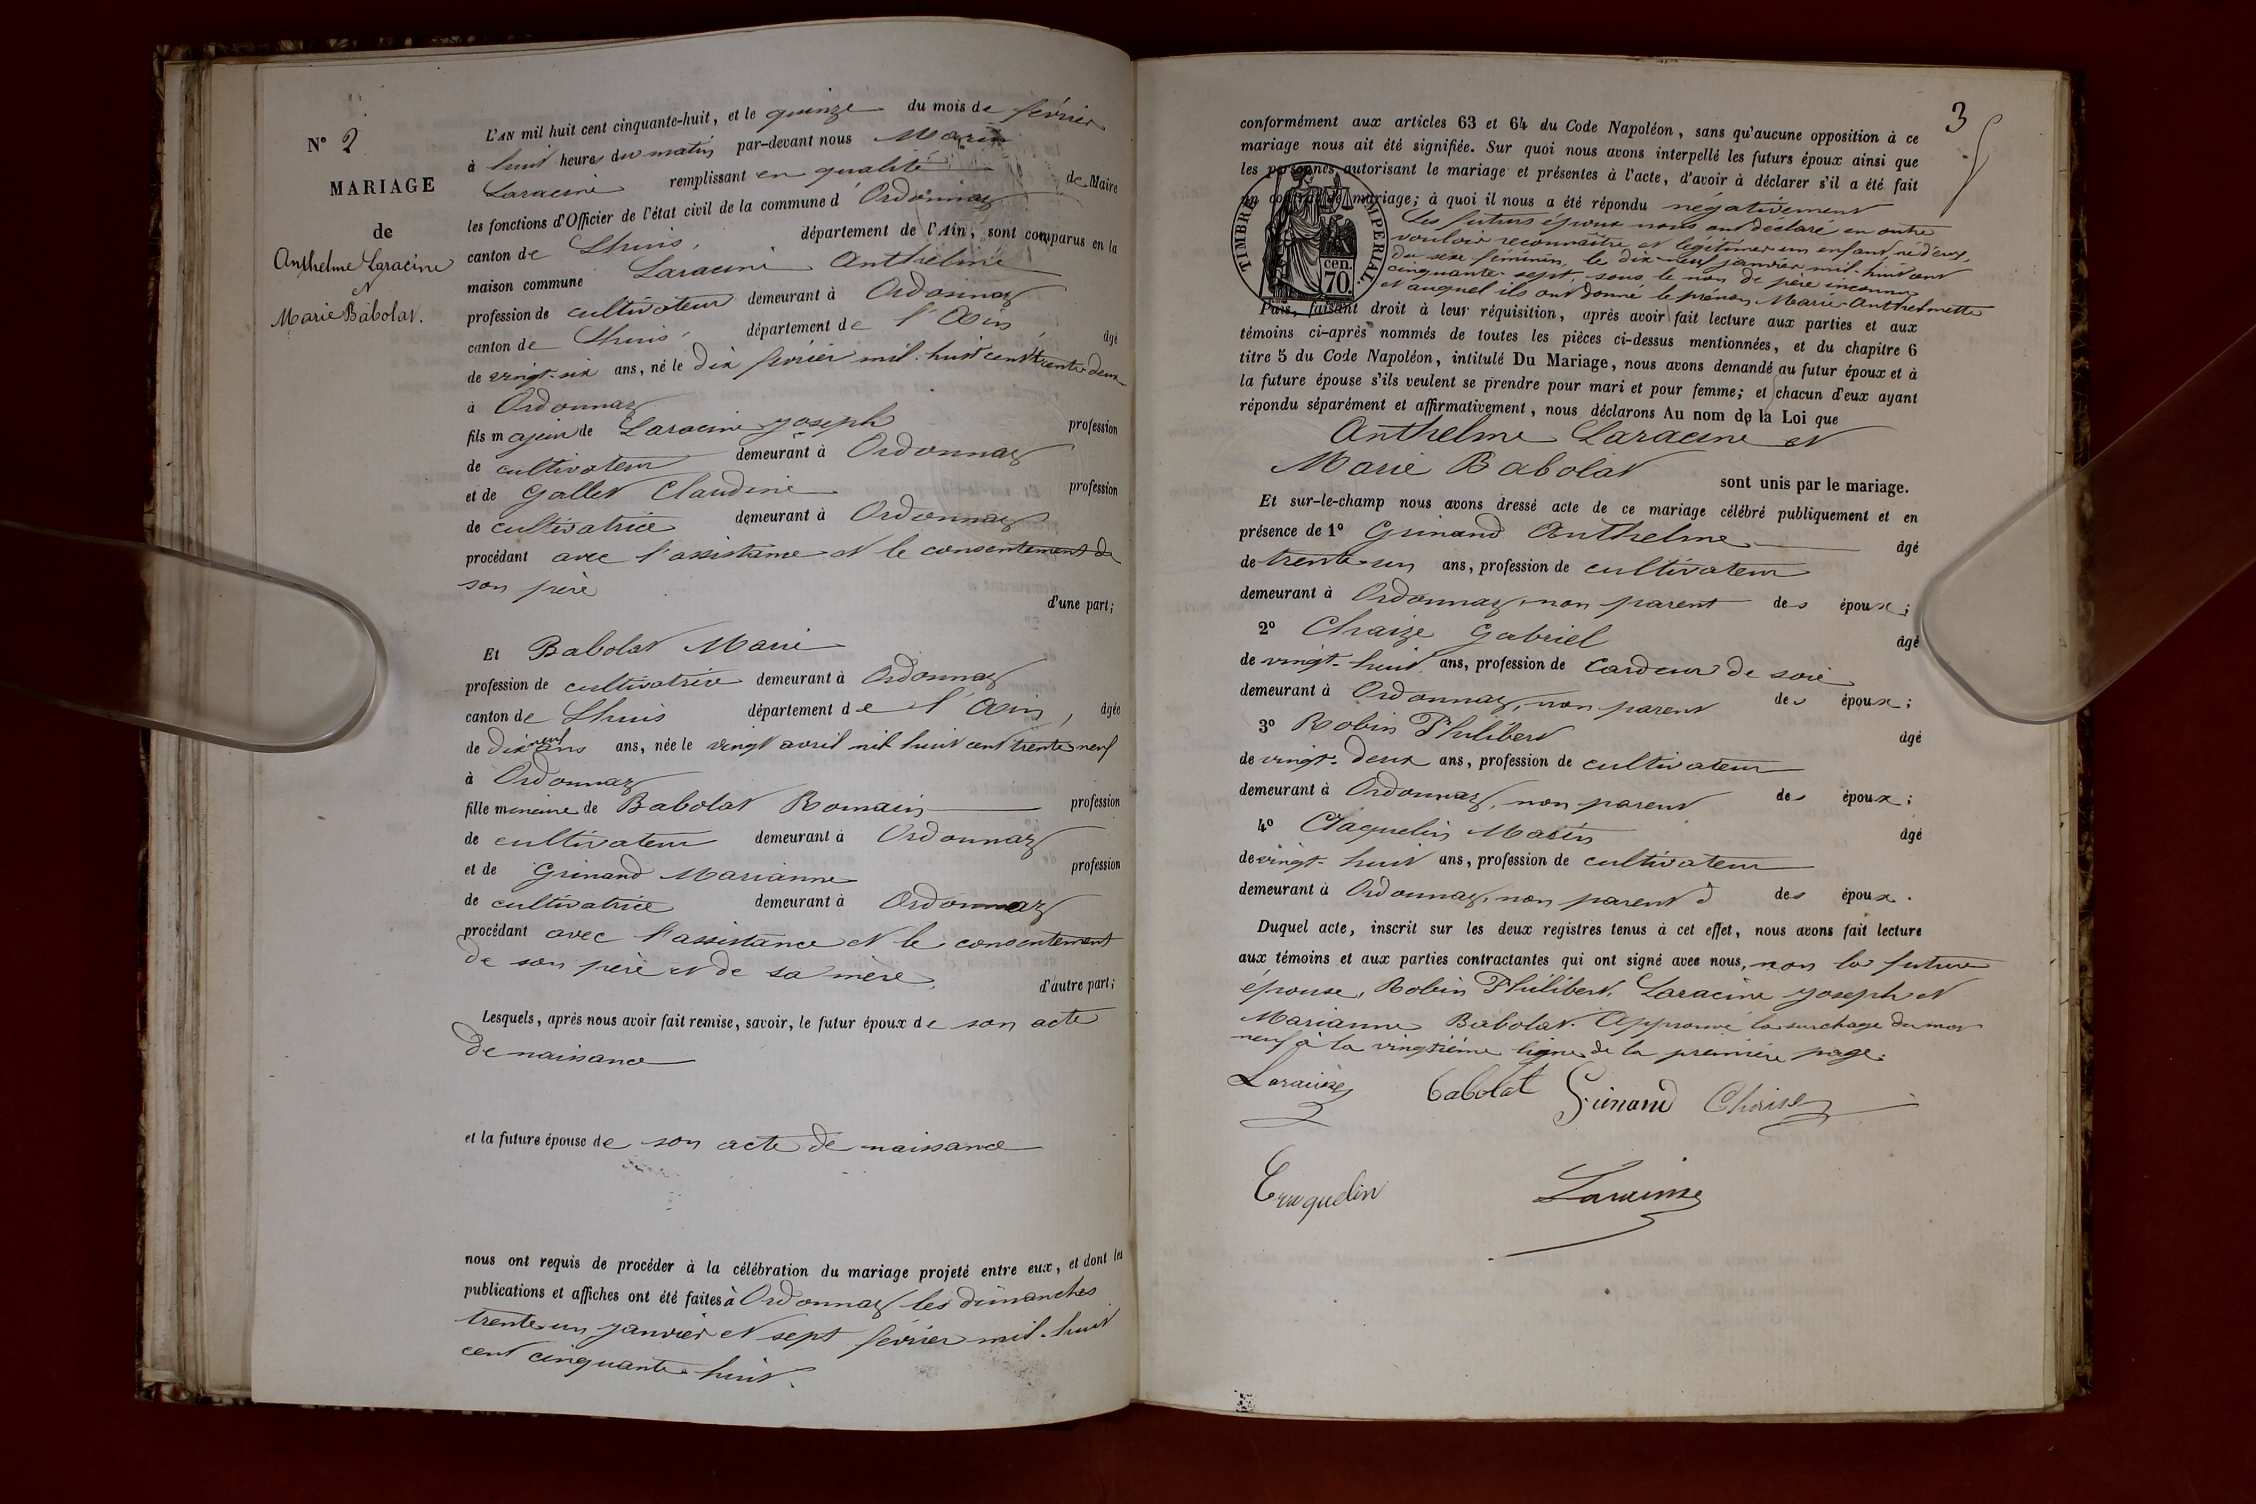 N° 2
MARIAGE
de
Anthelme Laracine
et
Marie Babolat.
L'AN mil huit cent cinquante-huit, et le quinze du mois de février
à huit heures du matin par-devant nous Marin
Laracine remplissant en qualité de Maire
les fonctions d'Officier de l'état civil de la commune d'Ordonnaz
canton de Lhuis, département de l'Ain, sont comparus en la
maison commune Laracine Anthelme
profession de cultivateur demeurant à Ordonnaz
canton de Lhuis, département de l'Ain, âgé
de vingt-six ans, né le dix février mil-huit cent trente-deux
à Ordonnaz
fils majeur de Laracine Joseph profession
de cultivateur demeurant à Ordonnaz
et de Gallet Claudine profession
de cultivatrice demeurant à Ordonnaz
procédant avec l'assistance et le consentement de
son père
d'une part;
Et Babolat Marie
profession de cultivatrice demeurant à Ordonnaz
canton de Lhuis département de l'Ain, âgée
de dix neuf ans ans, née le vingt avril mil huit cent trente neuf
à Ordonnaz
fille mineure de Babolat Romain profession
de cultivateur demeurant à Ordonnaz
et de Grinand Marianne profession
de cultivatrice demeurant à Ordonnaz
procédant avec l'assistance et le consentement
de son père et de sa mère.
d'autre part;
Lesquels, après nous avoir fait remise, savoir, le futur époux de son acte
de naissance
et la future épouse de son acte de naissance
nous ont requis de procéder à la célébration du mariage projeté entre eux, et dont les
publications et affiches ont été faites à Ordonnaz les dimanches
trente-un janvier et sept février mil-huit
cent cinquante-huit.
3
conformément aux articles 63 et 64 du Code Napoléon, sans qu'aucune opposition à ce
mariage nous ait été signifiée. Sur quoi nous avons interpellé les futurs époux ainsi que
les personnes autorisant le mariage et présentes à l'acte, d'avoir à déclarer s'il a été fait
un contrat de mariage; à quoi il nous a été répondu négativement
TIMBRE IMPERIAL.
cen.
70.
Les futurs époux nous ont déclaré en outre
vouloir reconnaître et légitimer un enfant né d'eux,
du sexe féminin, le dix-neuf janvier mil-huit cent
cinquante-sept sous le nom de père inconnu
et auquel ils ont donné le prénom Marie-Anthelmette
Puis, faisant droit à leur réquisition, après avoir fait lecture aux parties et aux
témoins ci-après nommés de toutes les pièces ci-dessus mentionnées, et du chapitre 6
titre 5 du Code Napoléon, intitulé Du Mariage, nous avons demandé au futur époux et à
la future épouse s'ils veulent se prendre pour mari et pour femme; et chacun d'eux ayant
répondu séparément et affirmativement, nous déclarons Au nom de la Loi que
Anthelme Laracine et
Marie Babolat sont unis par le mariage.
Et sur-le-champ nous avons dressé acte de ce mariage célébré publiquement et en
présence de 1° Grinand Anthelme âgé
de trente-un ans, profession de cultivateur
demeurant à Ordonnaz, non parent des époux;
2° Chaize Gabriel âgé
de vingt-huit ans, profession de Cardeur de soie
demeurant à Ordonnaz, non parent des époux;
3° Robin Philibert âgé
de vingt-deux ans, profession de cultivateur
demeurant à Ordonnaz, non parent des époux;
4° Craquelin Marin âgé
de vingt-huit ans, profession de cultivateur
demeurant à Ordonnaz, non parent d des époux.
Duquel acte, inscrit sur les deux registres tenus à cet effet, nous avons fait lecture
aux témoins et aux parties contractantes qui ont signé avec nous, non la future
épouse, Robin Philibert, Laracine Joseph et
Marianne Babolat. Approuvé la surchage du mot
neuf à la vingtième ligne de la première page.
Laracine Babolat Grinand Chaise
Craquelin Laracine